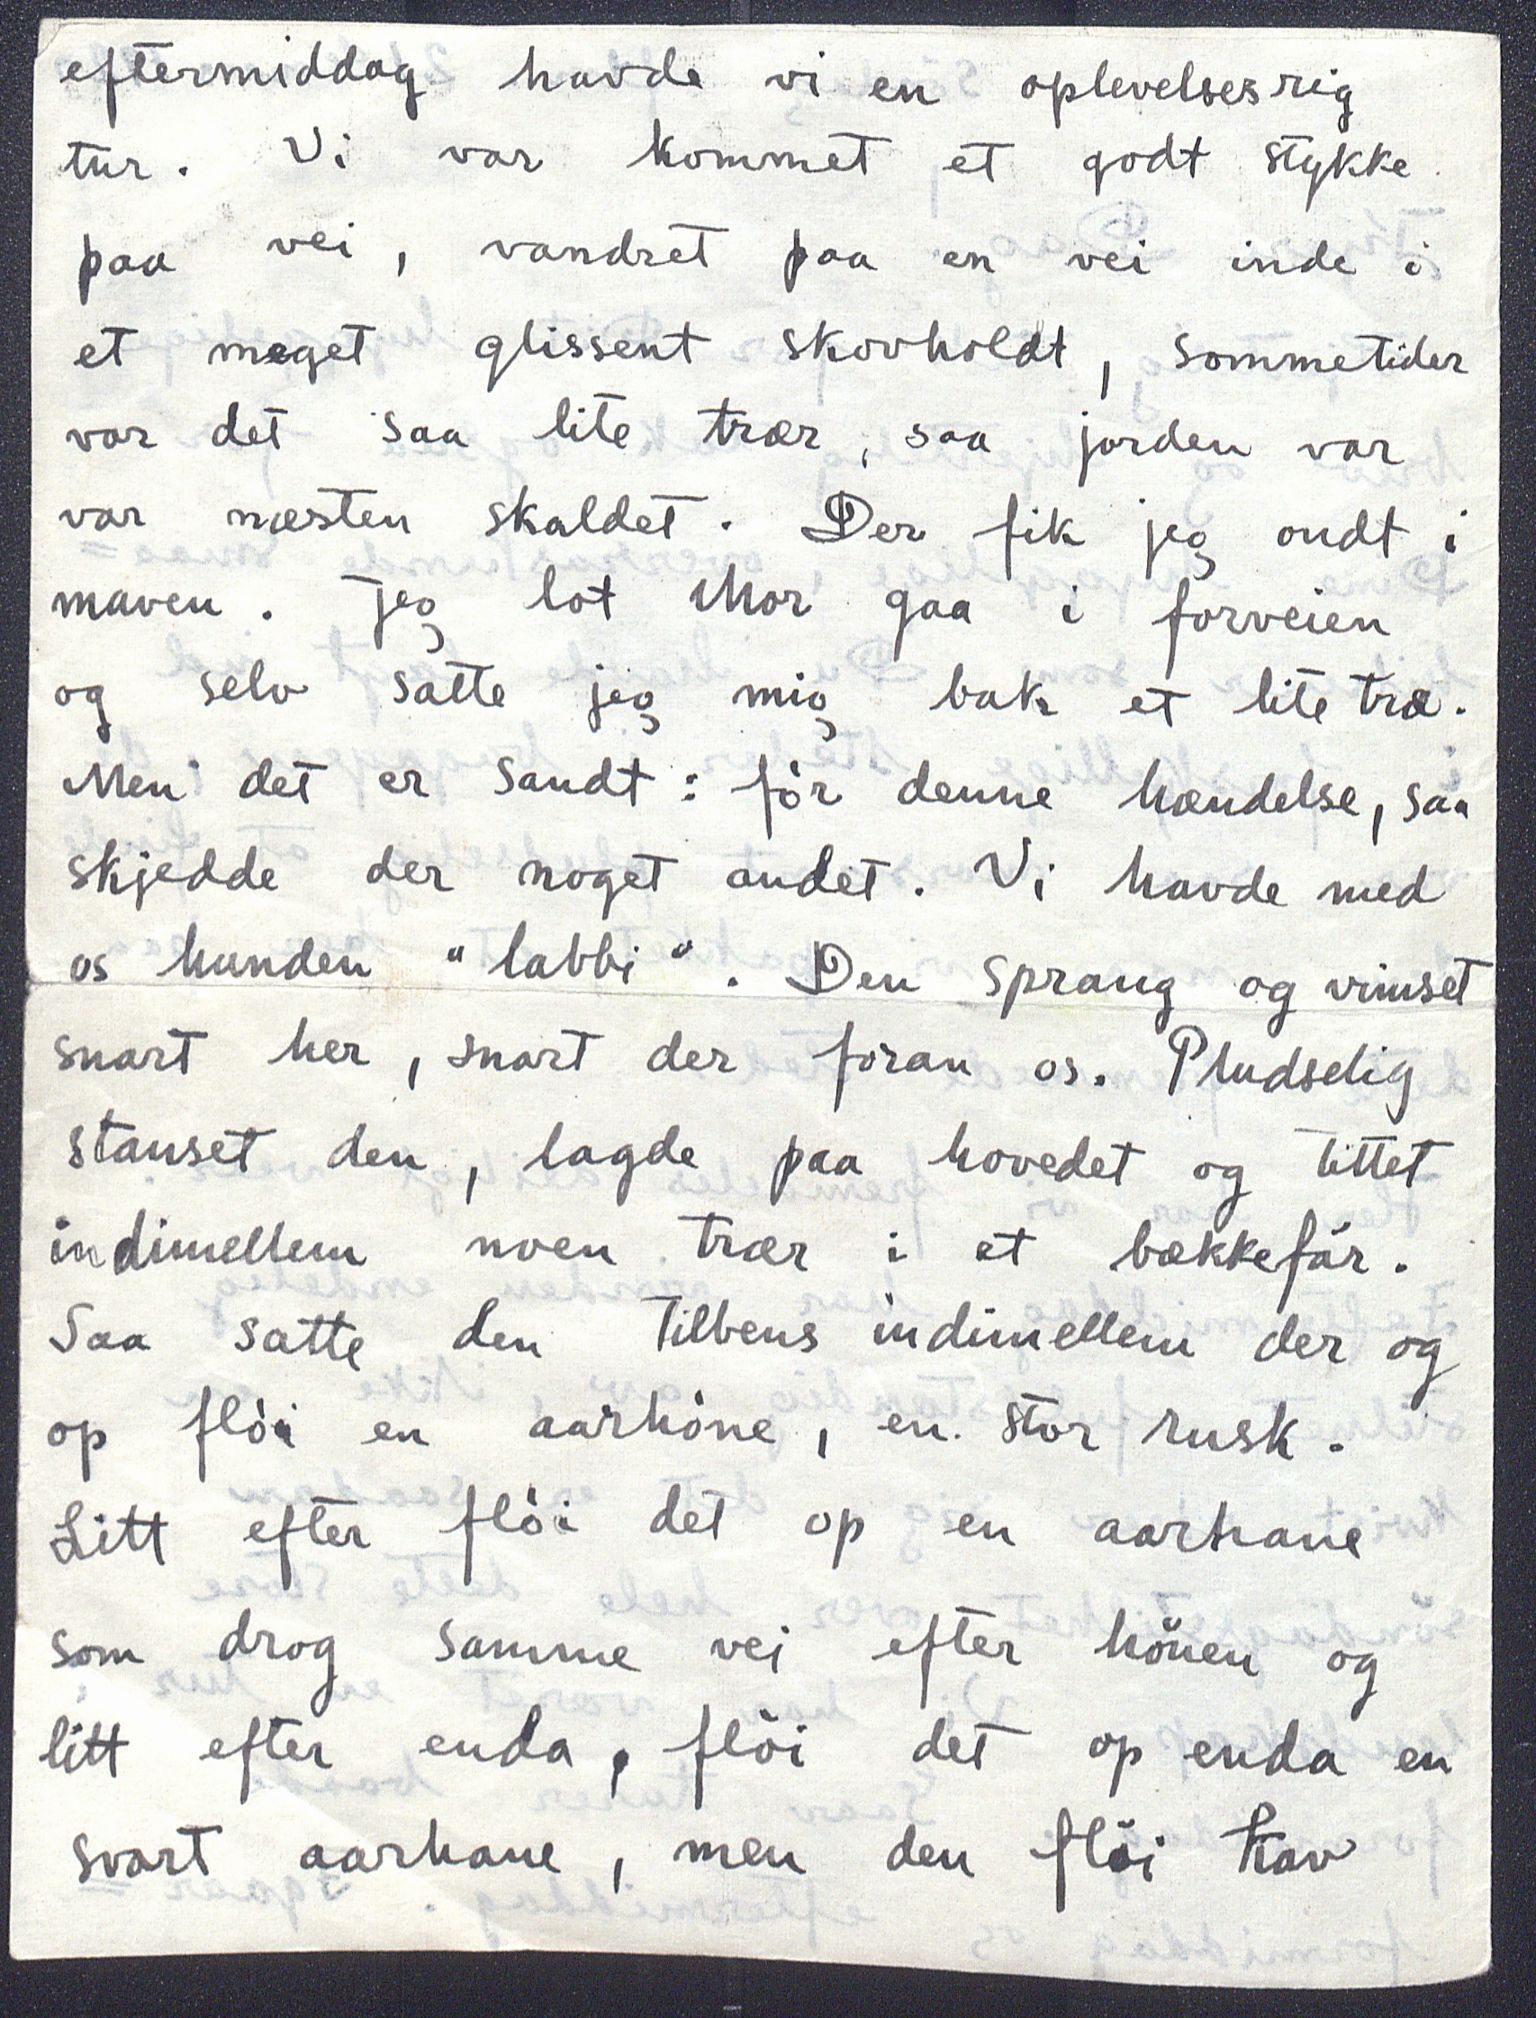 eftermiddag havde vi en oplevelsesrig
tur. Vi var kommet et godt stykke
paa vei, vandret paa en vei inde i
et meget glissent skovholdt, sommetider
var det saa lite trær, saa jorden var
var næsten skaldet. Der fik jeg ondt i
maven. Jeg lot Mor gaa i forveien
og selv satte jeg mig bak et lite træ.
Men det er sandt: för denne hændelse, saa
skjedde der noget andet. Vi havde med
os hunden "labbi". Den sprang og vimset
snart her, snart der foran os. Pludselig
stanset den, lagde paa hovedet og tittet
indimellem noen trær i et bækkefår.
Saa satte den tilbens indimellem der og
op flöi en aarhöne, en stor rusk.
Litt efter flöi det op en aarhane
som drog samme vei efter hönen og
litt efter enda, flöi det op enda en
svart aarhane, men den flöi kav